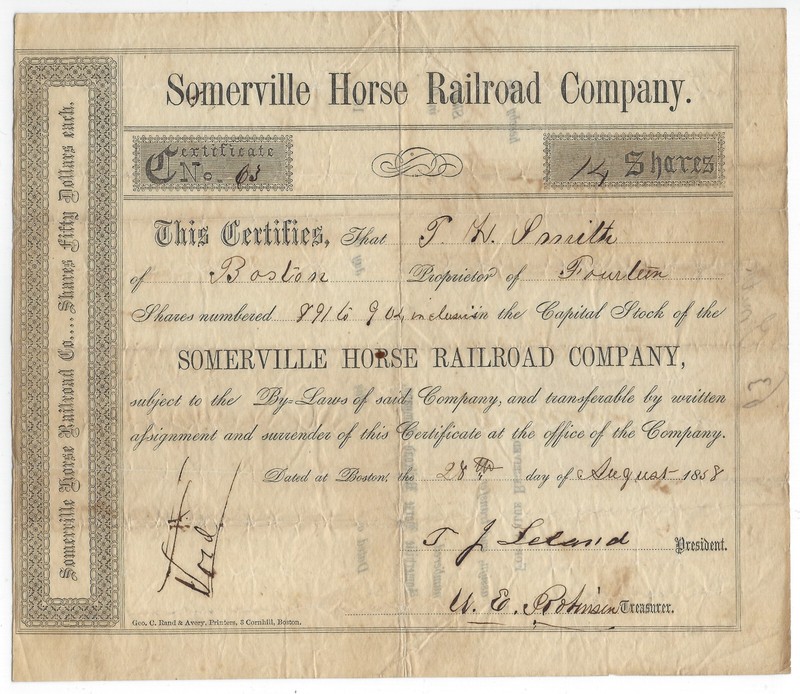 Somerville Horse Railroad Company.
Certificate No. 63
14 Shares
This Certifies, That T. H. Smith
of Boston Proprietor of Fourteen
Shares numbered 891 to 904 inclusive in the Capital Stock of the
SOMERVILLE HORSE RAILROAD COMPANY,
subject to the By-Laws of said Company, and transferable by written
assignment and surrender of this Certificate at the office of the Company.
Dated at Boston, the 28th day of August 1858
Void
T J Leland President.
W. E. Robinson Treasurer.
Geo. C. Rand & Avery, Printers, 3 Cornhill, Boston.
Somerville Horse Railroad Co.... Shares Fifty Dollars each.